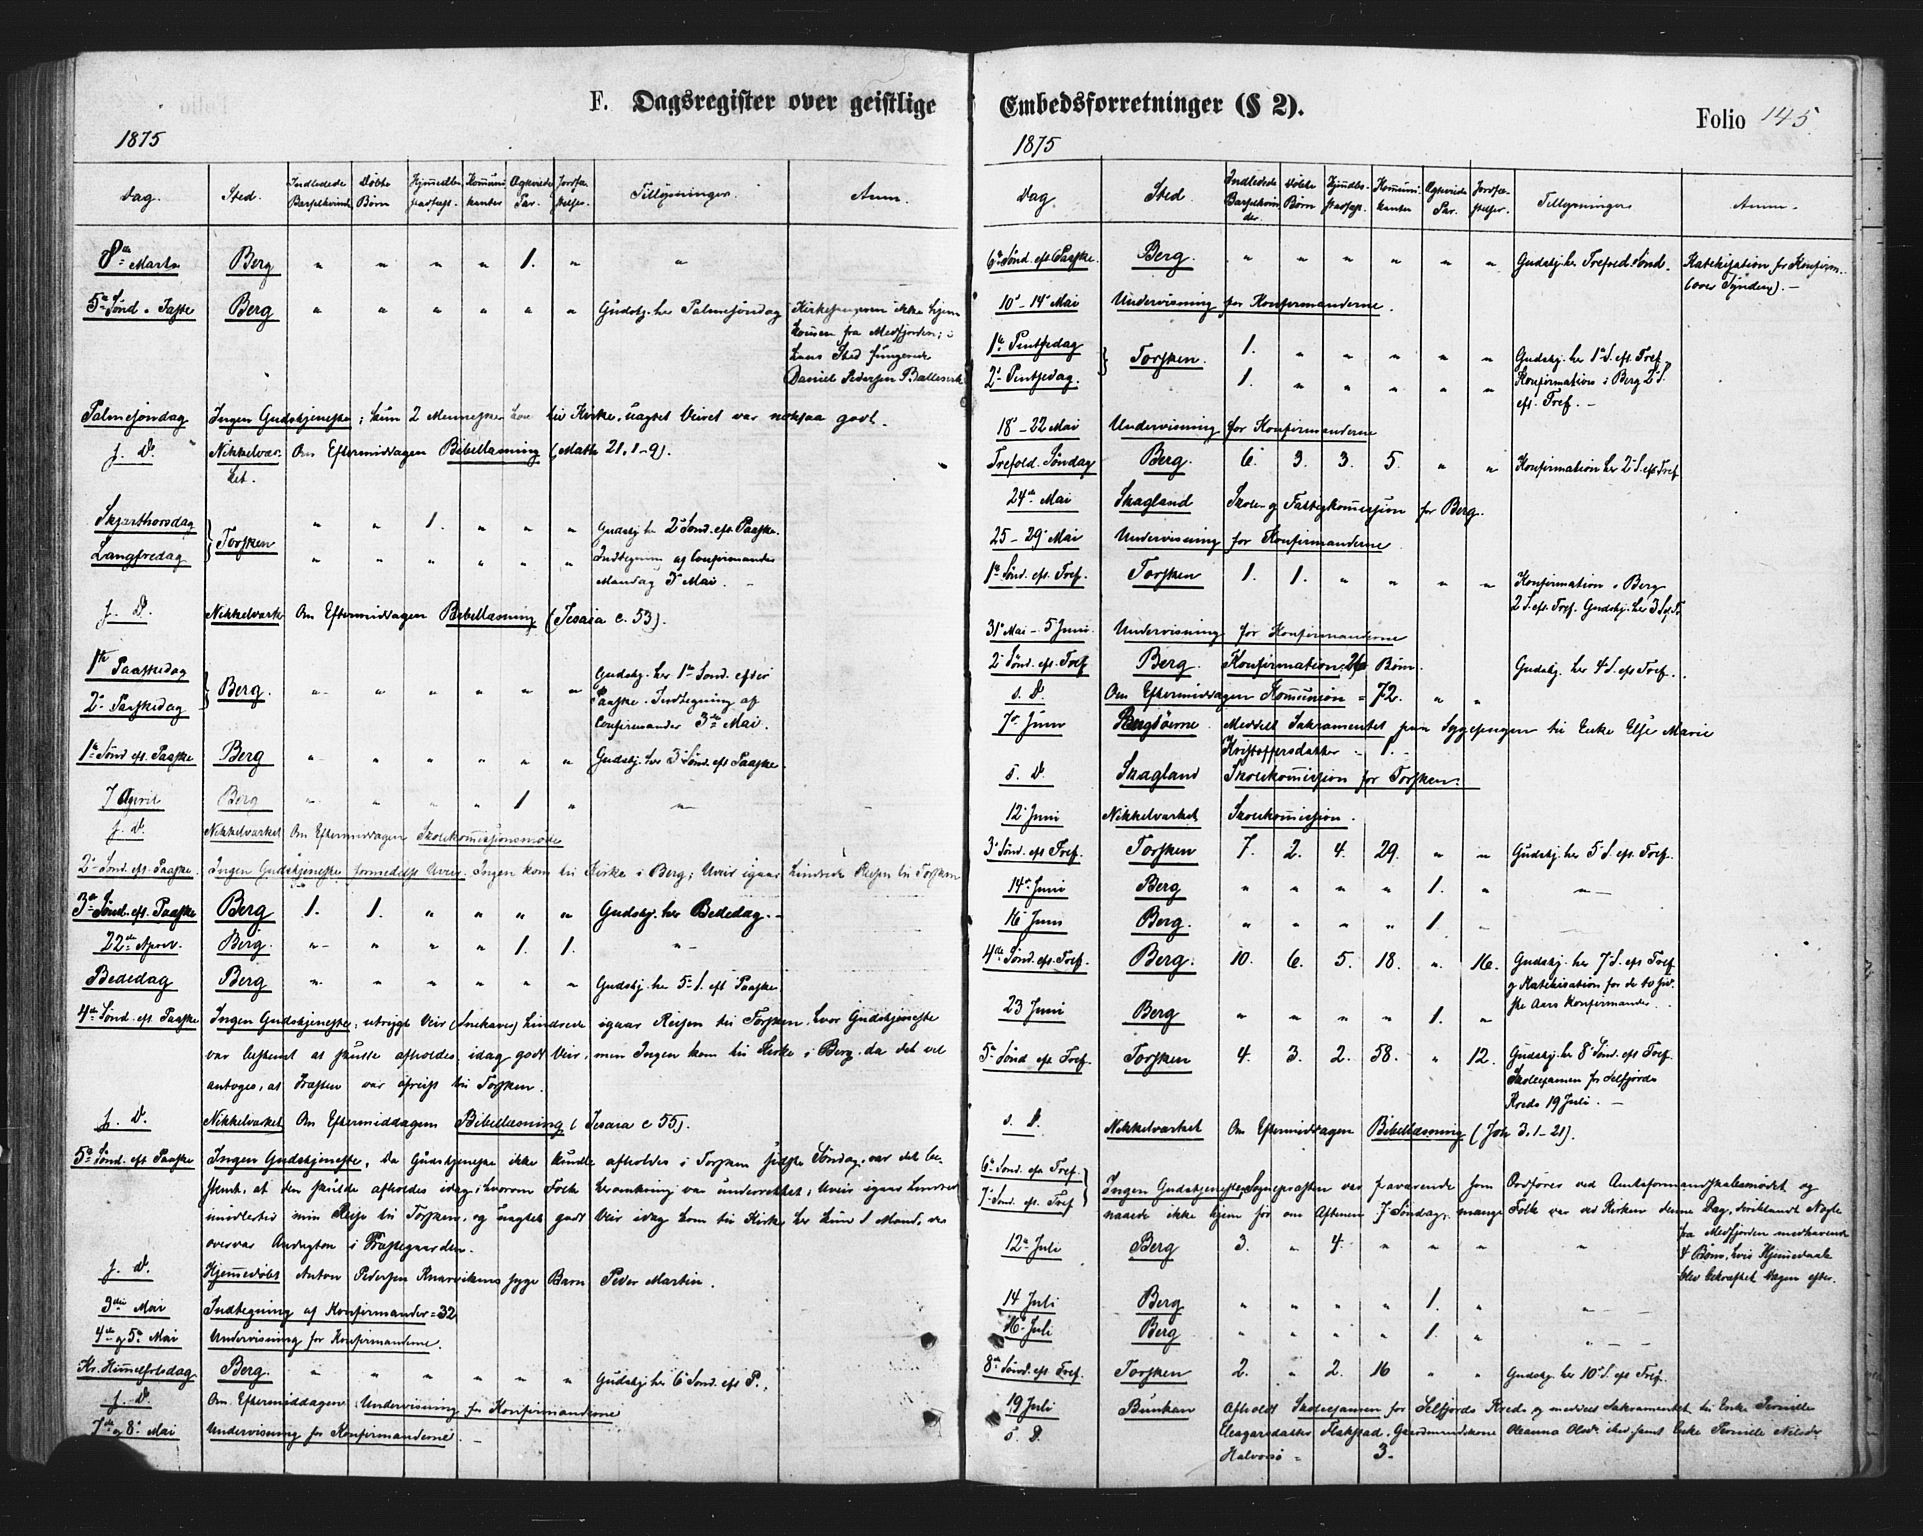 F. Dagsregister over geistlige
1875
Dag. Sted. Indledede Barselkvind. Døbte Børn Hjemmedbs. stadfæst. Kommunikanter Ægteviede Par. Jordfæstelser. Tillysninger. Anm.
8de Marts Berg " " " " 1. " "
5te Sønd. i Faste Berg " " " " " " Gudstj. her Palmesøndag Kirkesangeren ikke hjem-
kommen fra Medfjorden; i
hans Sted fungerede
Daniel Pedersen Ballesvik
Palmesøndag Ingen Gudstjeneste; kun 2 Mennesker kom til Kirke, uagtet Veiret var noksaa godt.
s. D. Nikkelvær- Om Eftermiddagen Bibellæsning (Matth 21, 1-9).
ket.
Skjærthorsdag } Torsken " " 1. " " " Gudstj. her 2d Sønd. eft. Paaske.
Langfredag " " " " " " Indtegning af Confirmander
Mandag 3de Mai.
s. D. Nikkelværket Om Eftermiddagen Bibellæsning (Jesaia c. 53).
1ste Paaskedag } Berg. " " " " " " Gudstj. her 1ste Sønd. efter
2den Paaskedag Paaske. Indtegning af
Confirmander 3die Mai.
1ste Sønd. eft. Paaske Berg " " " " " " Gudstj. her 3 Sønd. eft. Paaske.
7 April Berg " " " " 1 " "
s. D. Nikkelværket Om Eftermiddagen Skolekommissionsmøde
2den Sønd. eft. Paaske. Ingen Gudstjeneste formedelst Uveir. Ingen kom til Kirke i Berg; Uveir igaar hindrede Reisen til Torsken
3die Sønd. eft. Paaske Berg 1. 1. " " " " Gudstj. her Bededag.
22de April. Berg. " " " " 1. 1. "
Bededag Berg " " " " " " Gudstj. her 5te S. eft Paaske
4de Sønd. eft. Paaske Ingen Gudstjeneste; utrygt Veir (Snekaver) hindrede igaar Reisen til Torsken, hvor Gudstjeneste
var bestemt at skulle afholdes, idag godt Veir, men Ingen kom til Kirke i Berg, da det vel
antoges, at Præsten var afreist til Torsken.
s. D. Nikkelværket Om Eftermiddagen Bibellæsning (Jesaia c 55).
5te Sønd. eft Paaske Ingen Gudstjeneste. Da Gudstjeneste ikke kunde afholdes i Torsken sidste Søndag, var det be-
stemt, at den skulde afholdes idag, hvorom Folk heromkring var underrettet; Uveir igaar hindred
imidlertid min Reise til Torsken, og uagtet godt Veir idag kom til Kirke her kun 1 Mand, der
overvar Andagten i Præstegaarden.
s. D. Hjemmedøbt Anton Pedersen Knarvikens syge Barn Peder Martin.
3die Mai Indtegning af Konfirmander = 32
4de og 5te Mai Undervisning for Konfirmanderne.
Kr. Himmelfartsdag Berg. " " " " " " Gudstj. her 6te Sønd. eft P.
s. D. Om Eftermiddagen Undervisning for Konfirmanderne
7de og 8de Mai Undervisning for Konfirmanderne.
Embedsforretninger (§ 2).
Folio 145.
1875
Dag Sted. Indledede Barselkvinder. Døbte Børn Hjemmdbs. stadfæst. Kommunikanter Ægteviede Par. Jordfæstelser. Tillysninger Anm.
6te Sønd. eft Paaske. Berg. " " " " " " Gudstj. her Trefold. Sønd. Katekisation for Konfirm.
(over Synden).
10de-14de Mai Undervisning for Konfirmanderne.
1ste Pintsedag } Torsken. 1. " " " " " Gudstj. her 1ste S. eft. Tref.
2den Pintsedag. 1. " " " " " Konfirmation i Berg 2d S.
eft. Tref.
18de-22 Mai Undervisning for Konfirmanderne
Trefold. Søndag Berg. 6. 3. 3. 5. " " Konfirmation her 2d S. eft Tref
24de Mai Skagland Skole og Fattigkommission for Berg.
25-29de Mai Undervisning for Konfirmanderne
1ste Sønd. eft. Tref. Torsken 1. 1. " " " " Konfirmation i Berg
2 S. eft. Tref. Gudstj. her 3 S. e. Tr.
31te Mai - 5 Juni. Undervisning for Konfirmanderne
2den Sønd. eft. Tref Berg. Konfirmation. 26 Børn. Gudstj. her 4de S. eft Tref.
s. D. Om Eftermiddagen Kommunion = 72. " "
7de Juni Bergsøerne. Meddelt Sakramentet paa Sygesengen til Enke Else Marie
Kristoffersdatter - 1.
s. D. Skagland Skolekommission for Torsken.
12te Juni Nikkelværket Skolekommission.
3die Sønd. eft Tref. Torsken 7. 2. 4. 29. " " Gudstj. her 5te S. eft. Tref.
14de Juni Berg " " " " 1. " "
16de Juni Berg. " " " " 1. "
4de Sønd. eft. Tref. Berg. 10. 6. 5. 18. " 16. Gudstj. her 7de S. eft Tref
og Katekisation for de to sid-
ste Aars Konfirmander.
23 Juni Berg " " " " 1. "
5te Sønd eft Tref. Torsken 4. 3. 2. 58. " 12. Gudstj. her 8de Sønd. eft Tref.
Skoleexamen for Selfjords
Kreds 19 Juli.
s. D. Nikkelværket Om Eftermiddagen Bibellæsning (Joh 3. 1-21).
6te Sønd. eft Tref. } Ingen Gudstjeneste. Sognepræsten var fraværende som Ordfører ved Amtsformandskabsmødet og
7de Sønd. eft. Tref naaede ikke hjem før om Aftenen 7 Søndag; mange Folk var ved Kirken denne Dag, deriblandt Nogle
fra Medfjorden medhavende
12te Juli Berg 3. " 4. " " " " 4 Børn, hvis Hjemmedaab
blev bekræftet Dagen efter.
14 Juli Berg " " " " 1. " "
16de Juli Berg " " " " 1. " "
8de Sønd. eft Tref. Torsken 2. " 2. 16 " " Gudstj. her 10de S. eft Tref.
19 Juli Bunkan Afholdt Skoleexamen for Selfjords Kreds og meddelt Sakramentet til Enke Pernille
s. D. Flakstad, Gaardmandskone Oleanna Olsdr. ibid. samt Enke Pernille Nilsdr
Halvorsø = 3.